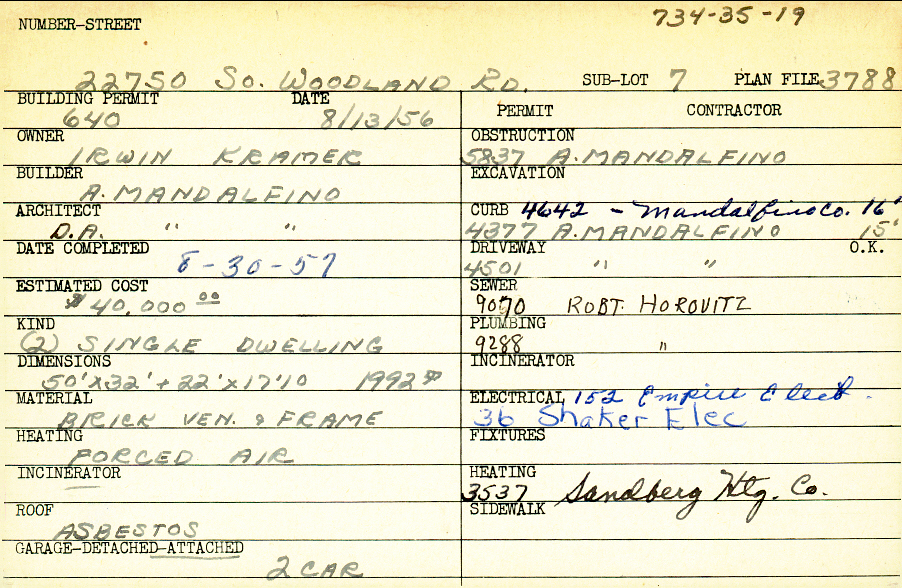 734-35-19
NUMBER-STREET
22750 So. WOODLAND RD. SUB-LOT 7 PLAN FILE 3788
BUILDING PERMIT DATE
640 8/13/56
OWNER
IRWIN KRAMER
BUILDER
A. MANDALFINO
ARCHITECT
D.A. " "
DATE COMPLETED
8-30-57
ESTIMATED COST
$40,000 00
KIND
(2) SINGLE DWELLING
DIMENSIONS
50'X32' + 22'X17'10 1992 #
MATERIAL
BRICK VEN. & FRAME
HEATING
FORCED AIR
INCINERATOR
ROOF
ASBESTOS
GARAGE-DETACHED-ATTACHED
2 CAR
PERMIT CONTRACTOR
OBSTRUCTION
5837 A. MANDALFINO
EXCAVATION
CURB 4642 - Mandalfino Co. 16'
4377 A. MANDALFINO 15'
DRIVEWAY O.K.
4501 " "
SEWER
9070 ROBT. HOROVITZ
PLUMBING
9288 "
INCINERATOR
ELECTRICAL 152 Empire Elect.
36 Shaker Elec
FIXTURES
HEATING
3537 Sandberg Htg. Co.
SIDEWALK